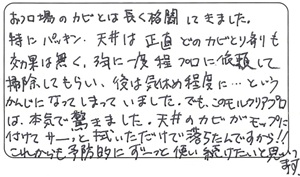 お風呂場のカビとは長く格闘してきました。
特にパッキン、天井は正直どのカビとり剤も
効果は無く、年に一度程プロに依頼して
掃除してもらい、後は気休め程度に…という
かんじになってしまっていました。でも、このモルカリアプロ
は、本気で驚きました。天井のカビがモップに
付けてサーッと拭いただけで落ちたんですから!!
これからも予防的にずーっと使い続けたいと思い
ます